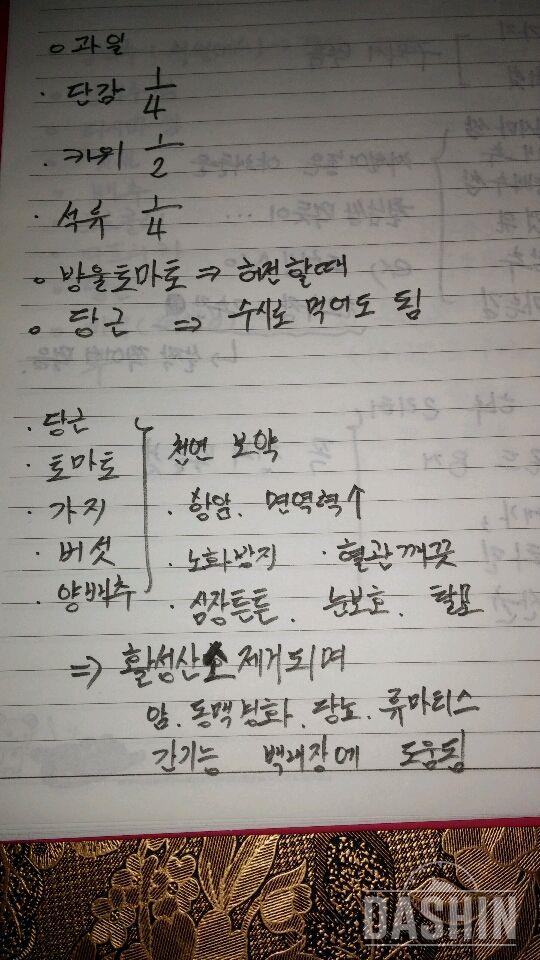 o 과일
· 단감 1/4
· 키위 1/2
· 석류 1/4
o 방울토마토 ⇒ 허전할때
o 당근 ⇒ 수시로 먹어도 됨
· 당근
· 토마토
· 가지
· 버섯
· 양배추
천연 보약
· 항암. 면역력↑
· 노화방지 · 혈관깨끗
· 심장튼튼. 눈보호. 탈모
⇒ 활성산소 제거되며
암. 동맥경화. 당뇨. 류마티스
간기능 백내장에 도움됨
DASHIN